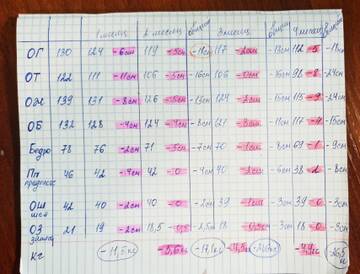 1 месяц 2 месяц общий 3 месяц общий 4 месяц общий
ОГ 130 124 -6см 119 -5см -11см 117 -2см -13см 112 -5 -18см
ОТ 122 111 -11см 106 -5см -16см 106 -0см -16см 98 -8 -24см
ОЖ 139 131 -8см 126 -5см -13см 124 -2см -15см 115 -9 -24см
ОБ 132 128 -4см 124 -4см -8см 121 -3см -11см 117 -4 -15см
Бедро 78 76 -2см 71 -5см -7см 70 -1см -8см 69 -1 -9см
46 42 -4см 42 -0 -4см 40 -2см -6см 38 -2 -8см
ОШ шея 42 40 -2см 40 -0 -2см 39 -1см -3см 39 -0 -3см
ОЗ 21 19 -2см 18,5 -2,5см 18 -3см 18 -0 -3см
КГ -11,5кг -5,6кг -17,1кг